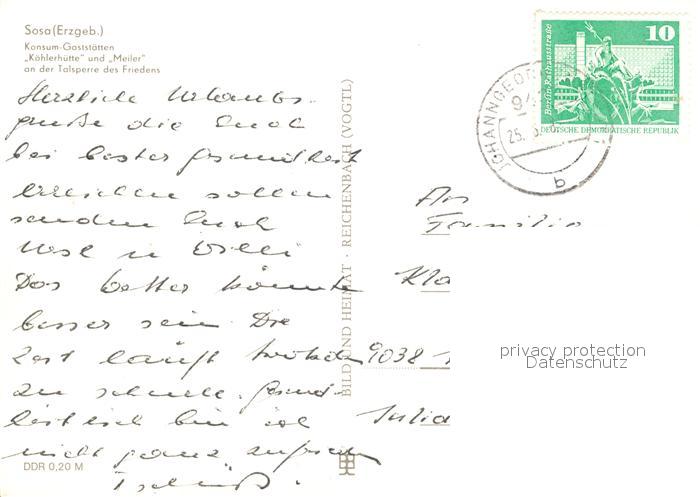 Sosa (Erzgeb.)
Konsum-Gaststätten
„Köhlerhütte" und „Meiler"
an der Talsperre des Friedens
Herzliche Urlaubs-
grüße die Euch
bei bester Gesundheit
erreichen sollen
senden Euch
Ursl u Willi
Das Wetter könnte
besser sein. Die
Zeit läuft
zu schnell. Gesund-
heitlich bin ich
nicht ganz zufrieden
Tschüß.
DDR 0,20 M
BILD UND HEIMAT · REICHENBACH (VOGTL)
10
Berlin-Rathausstraße
DEUTSCHE DEMOKRATISCHE REPUBLIK
JOHANNGEOR
94
25.
b
An
Familie
Kla
9038
Julia
privacy protection
Datenschutz